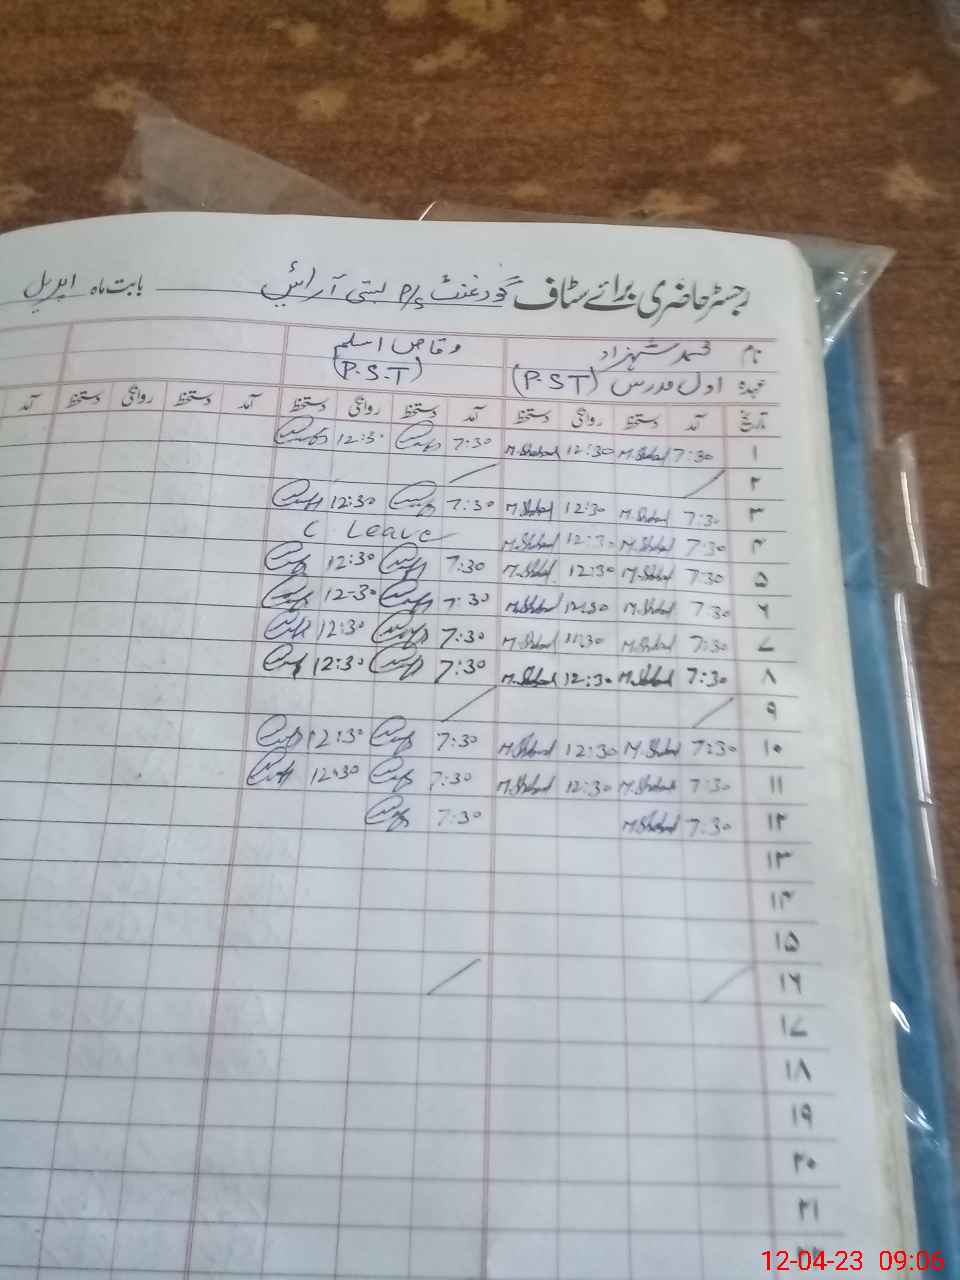 رجسٹر حاضری برائے سٹاف گورنمنٹ P/S بستی آرائیں بابت ماہ اپریل
نام محمد شہزاد وقاص اسلم
عہدہ اول مدرس (P.S.T) (P.S.T)
تاریخ آمد دستخط روانگی دستخط آمد دستخط روانگی دستخط آمد دستخط روانگی دستخط آمد
۱ 7:30 M.Shahzad 12:30 M.Shahzad 7:30 12:30
۲
۳ 7:30 M.Shahzad 12:30 M.Shahzad 7:30 12:30
۴ 7:30 M.Shahzad 12:30 M.Shahzad C. Leave
۵ 7:30 M.Shahzad 12:30 M.Shahzad 7:30 12:30
۶ 7:30 M.Shahzad 12:30 M.Shahzad 7:30 12-30
۷ 7:30 M.Shahzad M.Shahzad 7:30 12:30
۸ 7:30 M.Shahzad 12:30 M.Shahzad 7:30 12:30
۹
۱۰ 7:30 M.Shahzad 12:30 M.Shahzad 7:30 12:30
۱۱ 7:30 M.Shahzad 12:30 M.Shahzad 7:30 12:30
۱۲ 7:30 M.Shahzad 7:30
۱۳
۱۴
۱۵
۱۶
۱۷
۱۸
۱۹
۲۰
۲۱
12-04-23 09:06